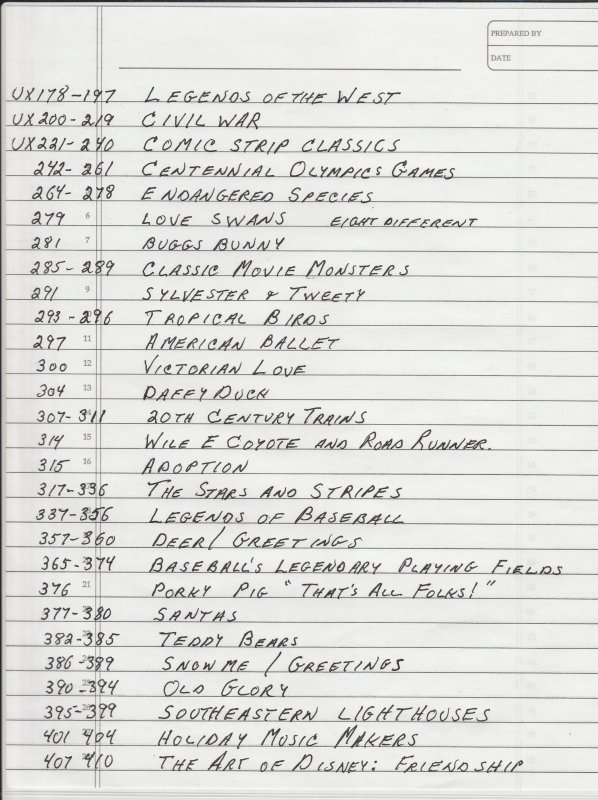 PREPARED BY
DATE
UX178-197 LEGENDS OF THE WEST
UX200-219 CIVIL WAR
UX221-240 COMIC STRIP CLASSICS
242-261 CENTENNIAL OLYMPICS GAMES
264-278 ENDANGERED SPECIES
279 6 LOVE SWANS EIGHT DIFFERENT
281 7 BUGGS BUNNY
285-289 CLASSIC MOVIE MONSTERS
291 9 SYLVESTER & TWEETY
293-296 TROPICAL BIRDS
297 11 AMERICAN BALLET
300 12 VICTORIAN LOVE
304 13 DAFFY DUCK
307-311 20TH CENTURY TRAINS
314 15 WILE E COYOTE AND ROAD RUNNER.
315 16 ADOPTION
317-336 THE STARS AND STRIPES
337-356 LEGENDS OF BASEBALL
357-360 DEER/GREETINGS
365-374 BASEBALL'S LEGENDARY PLAYING FIELDS
376 21 PORKY PIG "THAT'S ALL FOLKS!"
377-380 SANTAS
382-385 TEDDY BEARS
386-389 SNOWME/GREETINGS
390-394 OLD GLORY
395-399 SOUTHEASTERN LIGHTHOUSES
401 404 HOLIDAY MUSIC MAKERS
407 410 THE ART OF DISNEY: FRIENDSHIP